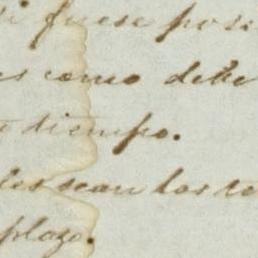 si fuese posi
es como debe
tiempo.
les sean los te
plazo.